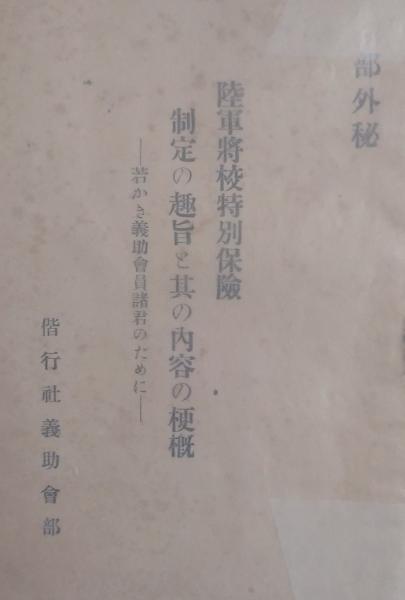 部外秘
陸軍將校特別保險
制定の趣旨と其の內容の梗概
―若かき義助會員諸君のために―
偕行社義助會部